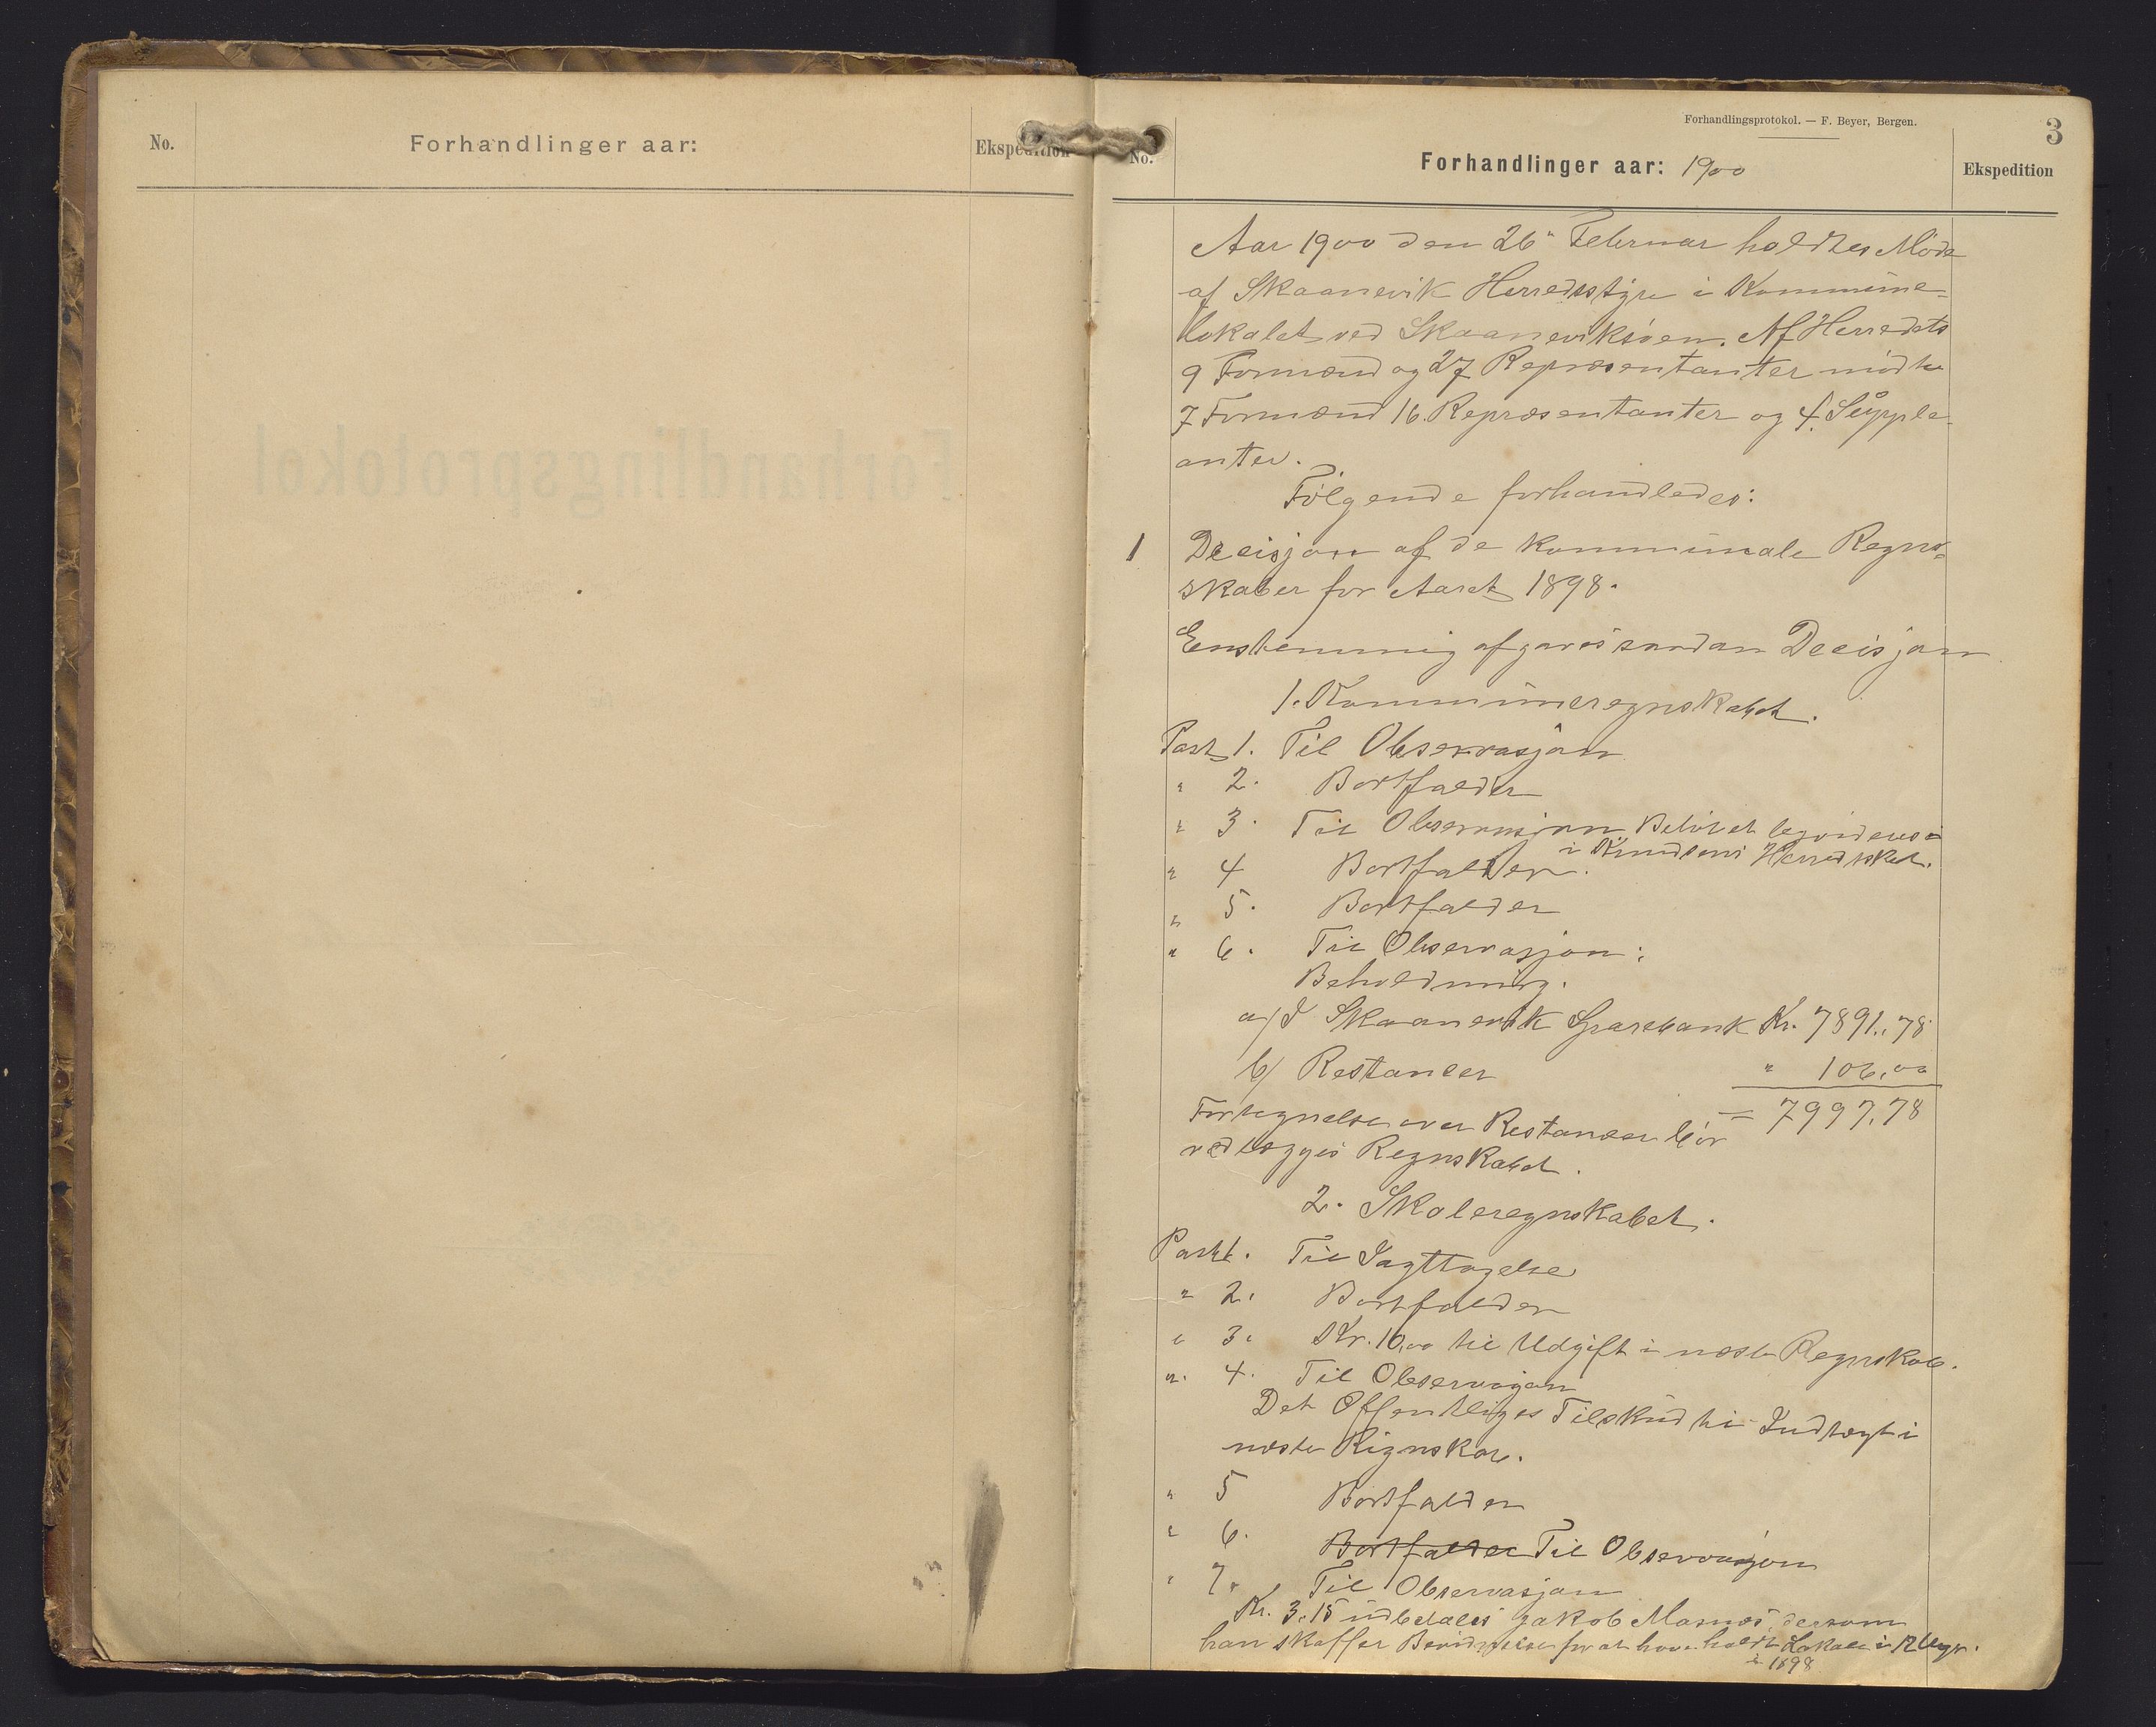 No.
Forhandlinger aar:
Ekspedition
Forhandlingsprotokol. — F. Beyer, Bergen.
3
No.
Forhandlinger aar: 1900
Ekspedition
Aar 1900 den 26" Februar holdtes Møde
af Skaanevik Herredsstyre i Kommune-
lokalet ved Skaaneviksøen. Af Herredets
9 Formænd og 27 Repræsentanter mødte
7 Formænd 16. Repræsentanter og 4. Supple-
anter.
Følgende forhandledes:
1 Decisjon af de kommunale Regns-
skaber for Aaret 1898.
Eenstemmig afgaves saadan Decisjon
1. Kommuneregnskabet.
Post 1. Til Observasjon
" 2. Bortfalder
" 3. Til Observasjon Beløbet
" 4 Bortfalder. i Knudsens
" 5. Bortfalder
" 6. Til Observasjon:
Beholdning.
a/ I Skaanevik Sparebank Kr. 7891,78
b/ Restancer " 106,00
= 7997,78
Fortegnelse over Restancer bør
vedlægges Regnskabet.
2. Skoleregnskabet.
Post 1. Til Iagttagelse
" 2. Bortfalder
" 3. Kr. 10,00 til Udgift i næste Regnskab.
" 4. Til Observasjon
Det Offentliges Tilskud til Indtægt i
næste Regnskab.
" 5 Bortfalder
" 6. Bortfalder Til Observasjon
" 7. Til Observasjon
Kr. 3,15 udbetales Jakob dersom
han skaffer Bevidnelse for at have holdt Lokale i 12 Uger.
i 1898